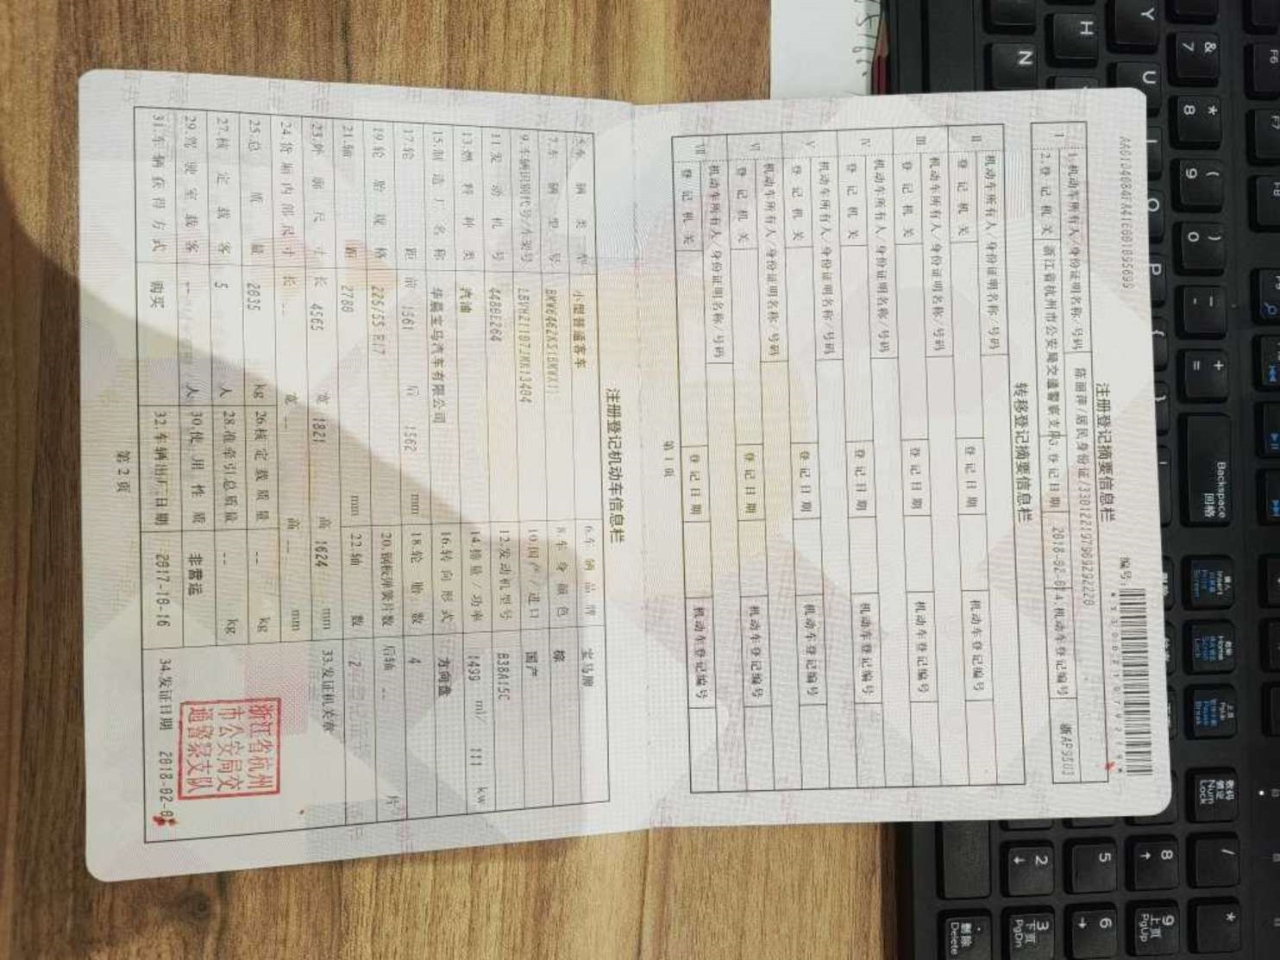 编号:
注册登记摘要信息栏
I 1.机动车所有人/身份证明名称/号码 陈丽萍/居民身份证/330122197909292220
2.登记机关 浙江省杭州市公安局交通警察支队 3.登记日期 2018-02- 4.机动车登记编号 浙AP95U3
转移登记摘要信息栏
II 机动车所有人/身份证明名称/号码
登记机关 登记日期 机动车登记编号
III 机动车所有人/身份证明名称/号码
登记机关 登记日期 机动车登记编号
IV 机动车所有人/身份证明名称/号码
登记机关 登记日期 机动车登记编号
V 机动车所有人/身份证明名称/号码
登记机关 登记日期 机动车登记编号
VI 机动车所有人/身份证明名称/号码
登记机关 登记日期 机动车登记编号
VII 机动车所有人/身份证明名称/号码
登记机关 登记日期 机动车登记编号
第1页
注册登记机动车信息栏
5.车辆类型 小型普通客车 6.车辆品牌 宝马牌
7.车辆型号 8.车身颜色 棕
9.车辆识别代号/车架号 10.国产/进口 国产
11.发动机号 4488E264 12.发动机型号 B38A15C
13.燃料种类 汽油 14.排量/功率 1499 ml/ 111 kw
15.制造厂名称 华晨宝马汽车有限公司 16.转向形式 方向盘
17.轮距 前 1561 后 1562 mm 18.轮胎数 4
19.轮胎规格 225/55 R17 20.钢板弹簧片数 后轴 -- 片
21.轴距 2780 mm 22.轴数 2
23.外廓尺寸 长 4565 宽 1821 高 1624 mm 33.发证机关章
24.货厢内部尺寸 长 -- 宽 -- 高 -- mm
25.总质量 2035 kg 26.核定载质量 -- kg
27.核定载客 5 人 28.准牵引总质量 -- kg
29.驾驶室载客 -- 人 30.使用性质 非营运
31.车辆获得方式 购买 32.车辆出厂日期 2017-10-16 34.发证日期 2018-02-0
浙江省杭州
市公安局交
通警察支队
第2页
Backspace
Num Lock
Insert
Home
Delete
PgUp
PgDn